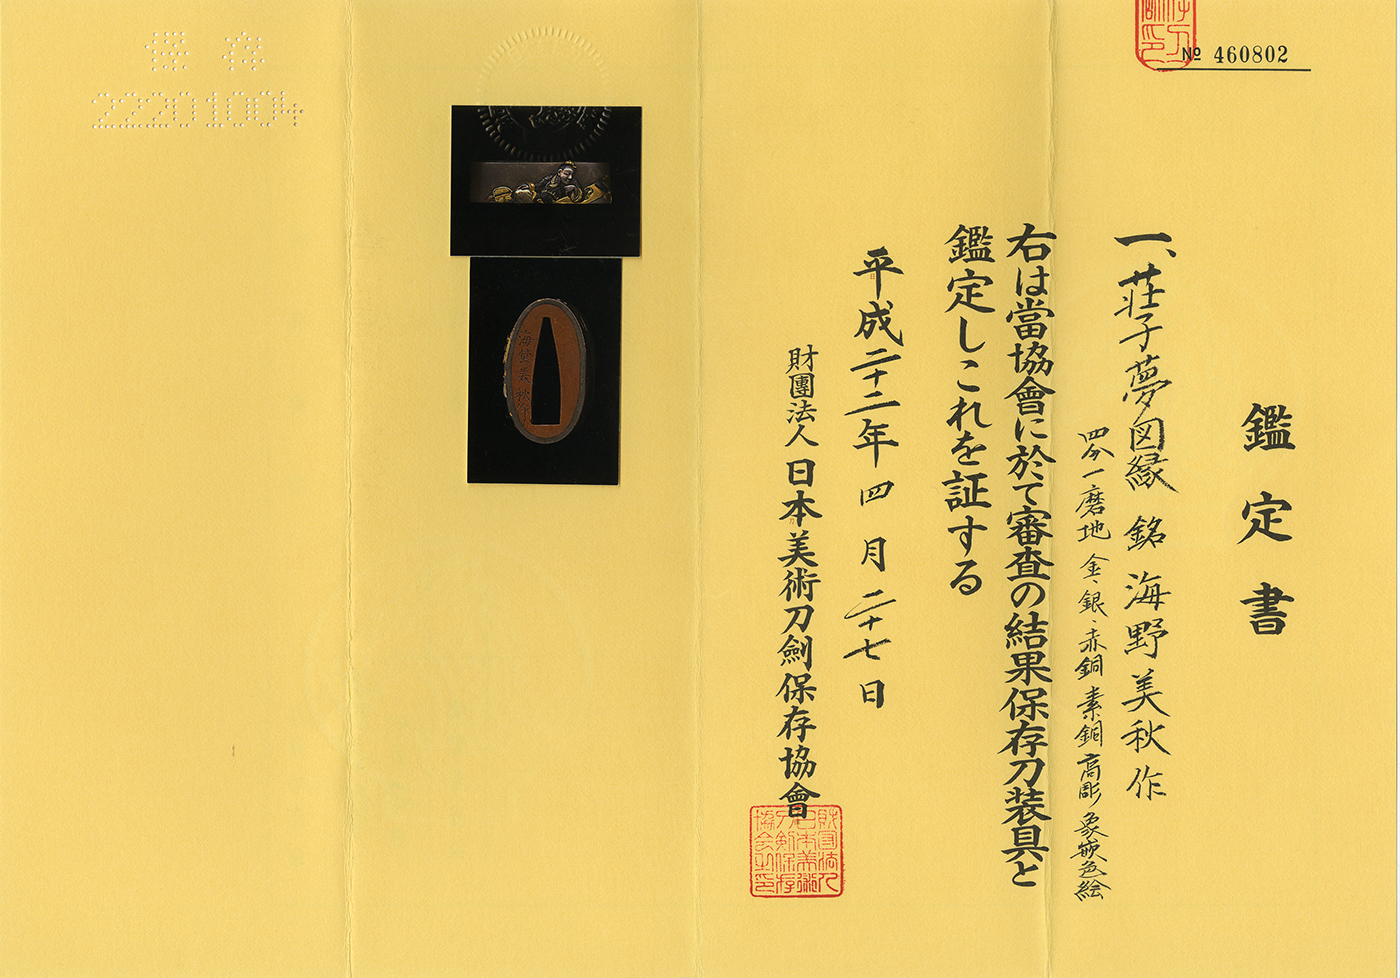 № 460802
鑑定書
一、荘子夢図縁 銘 海野美秋作
四分一磨地 金、銀、赤銅 素銅 高彫 象嵌色絵
右は當協會に於て審査の結果保存刀装具と
鑑定しこれを証する
平成二十二年四月二十七日
財團法人 日本美術刀劍保存協會
財団法人日本美術刀剣保存協会之印
保存
22201004